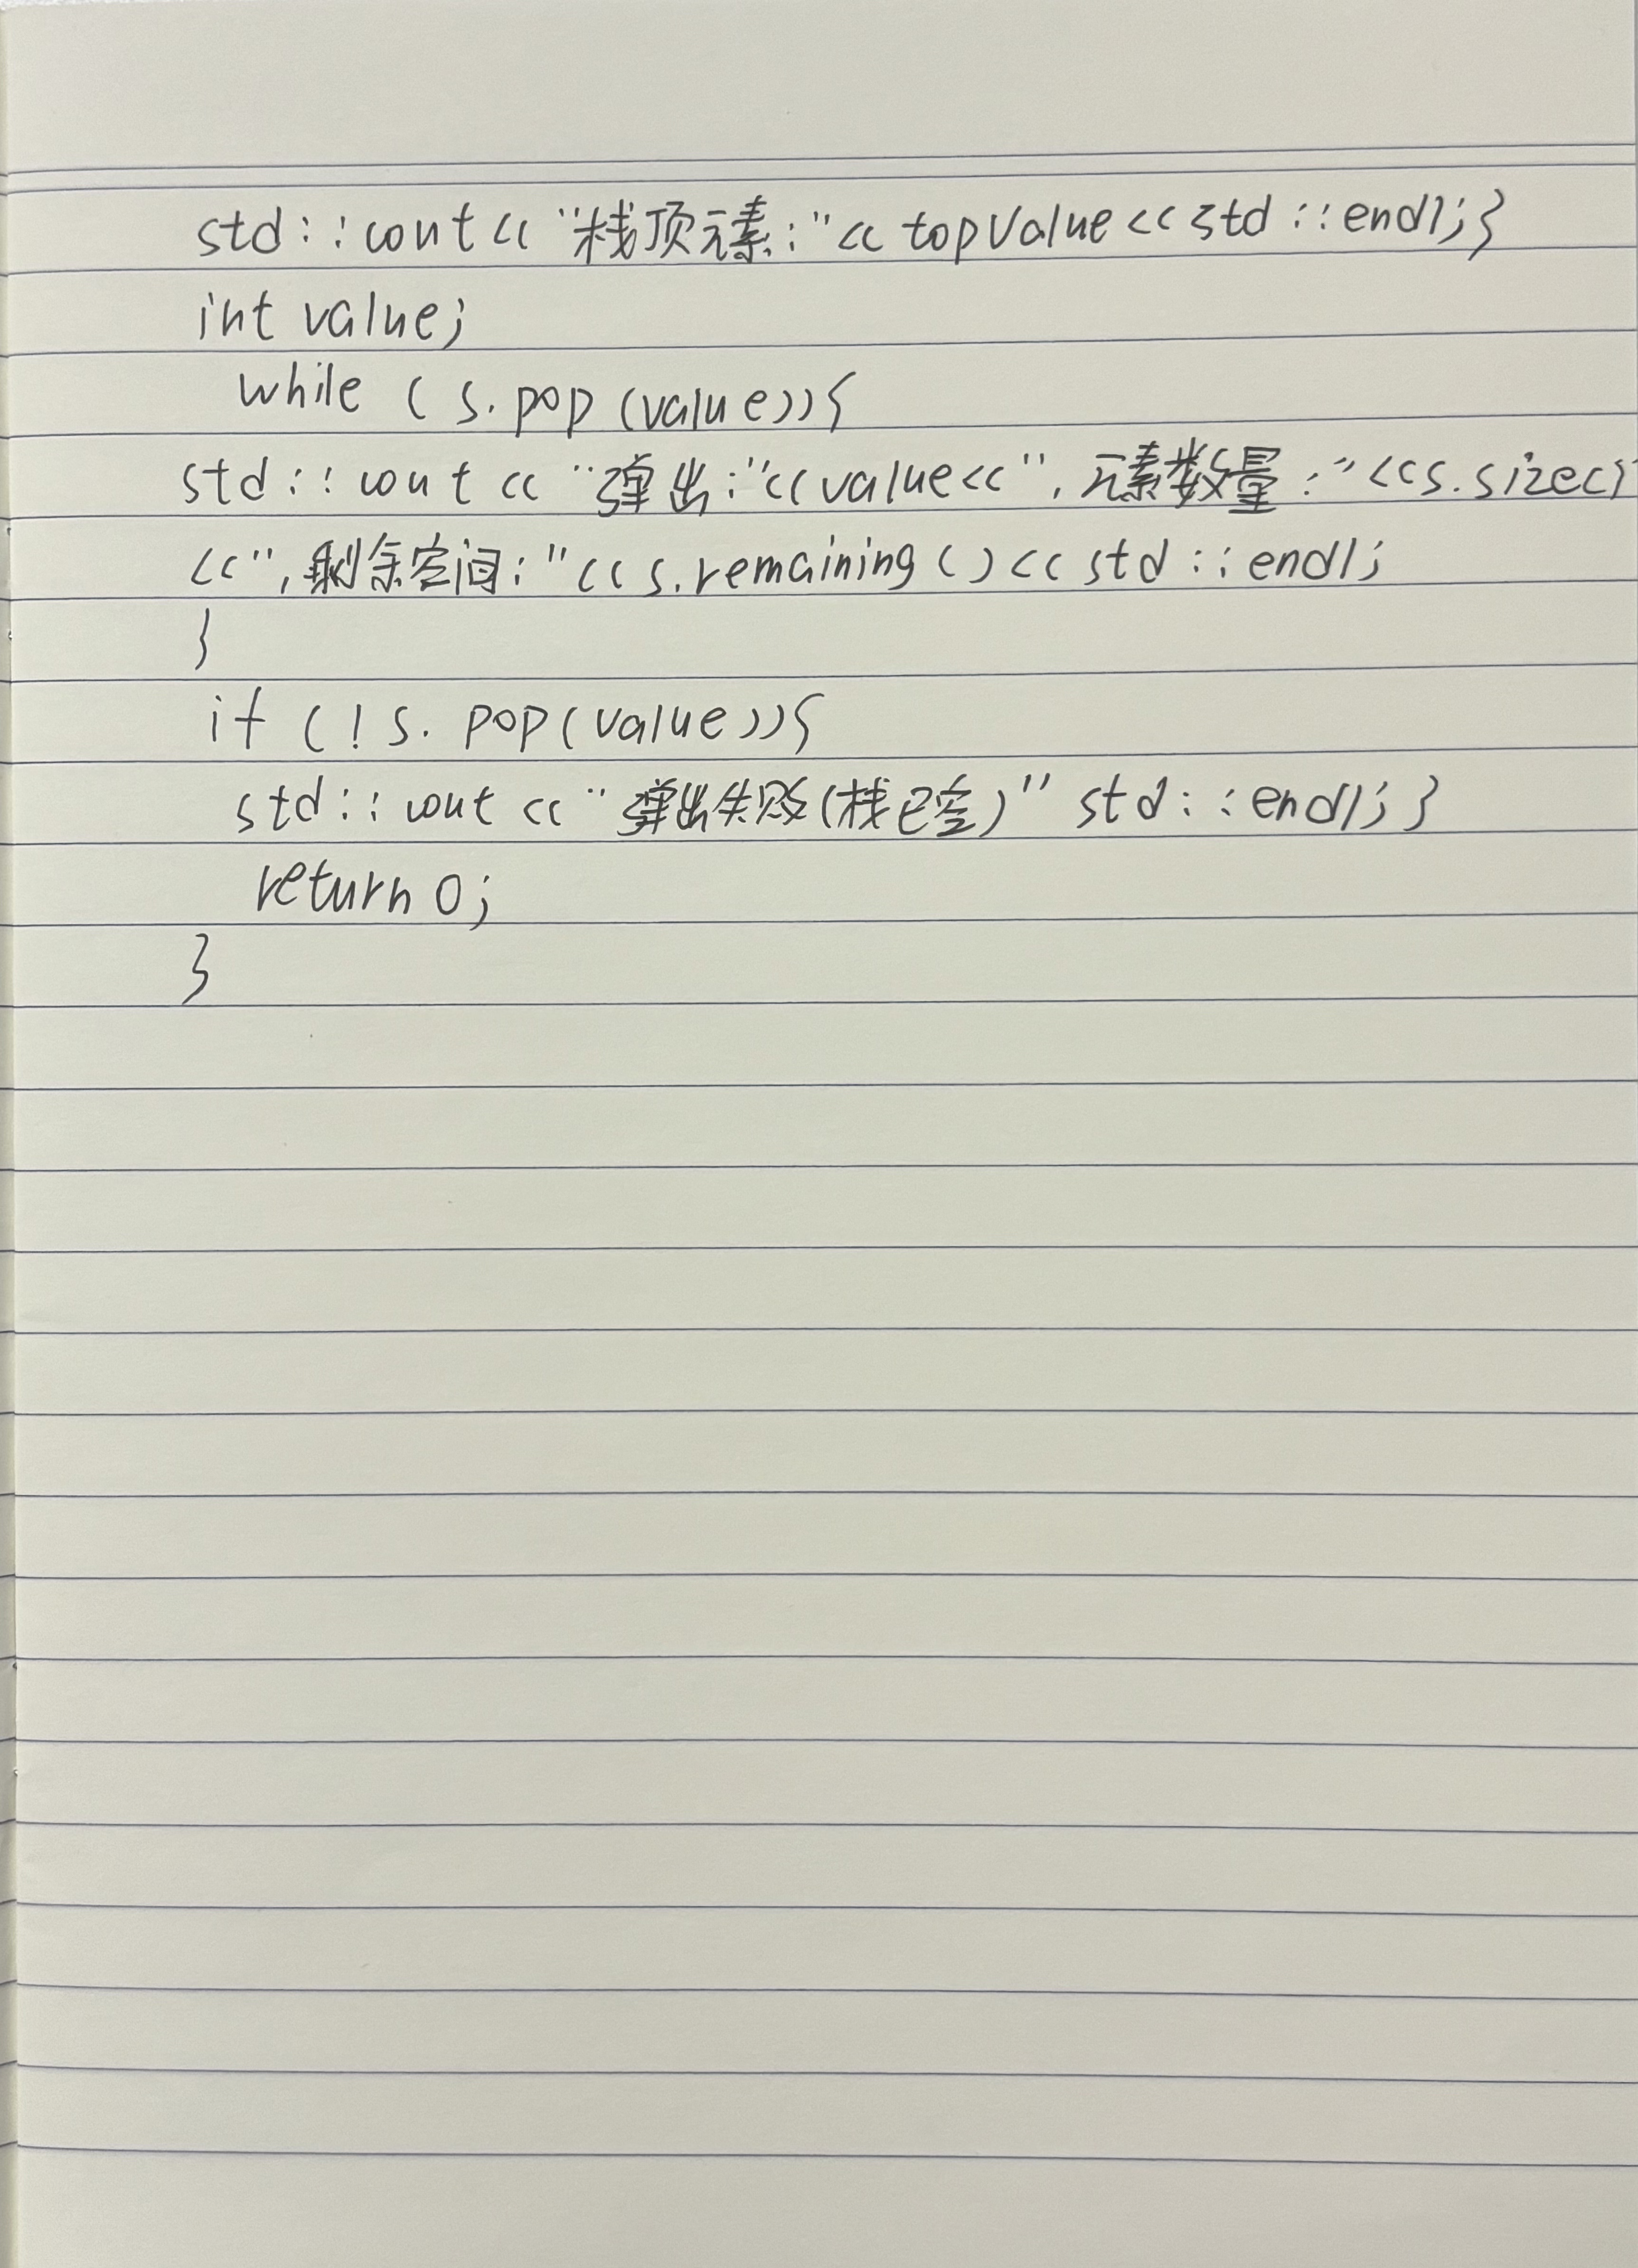 std::cout<<"栈顶元素:"<<topValue<<std::endl;}
int value;
while (s.pop(value)){
std::cout<<"弹出:"<<value<<",元素数量:"<<s.size()
<<",剩余空间:"<<s.remaining()<<std::endl;
}
if (!s.pop(value)){
std::cout<<"弹出失败(栈已空)" std::endl;}
return 0;
}